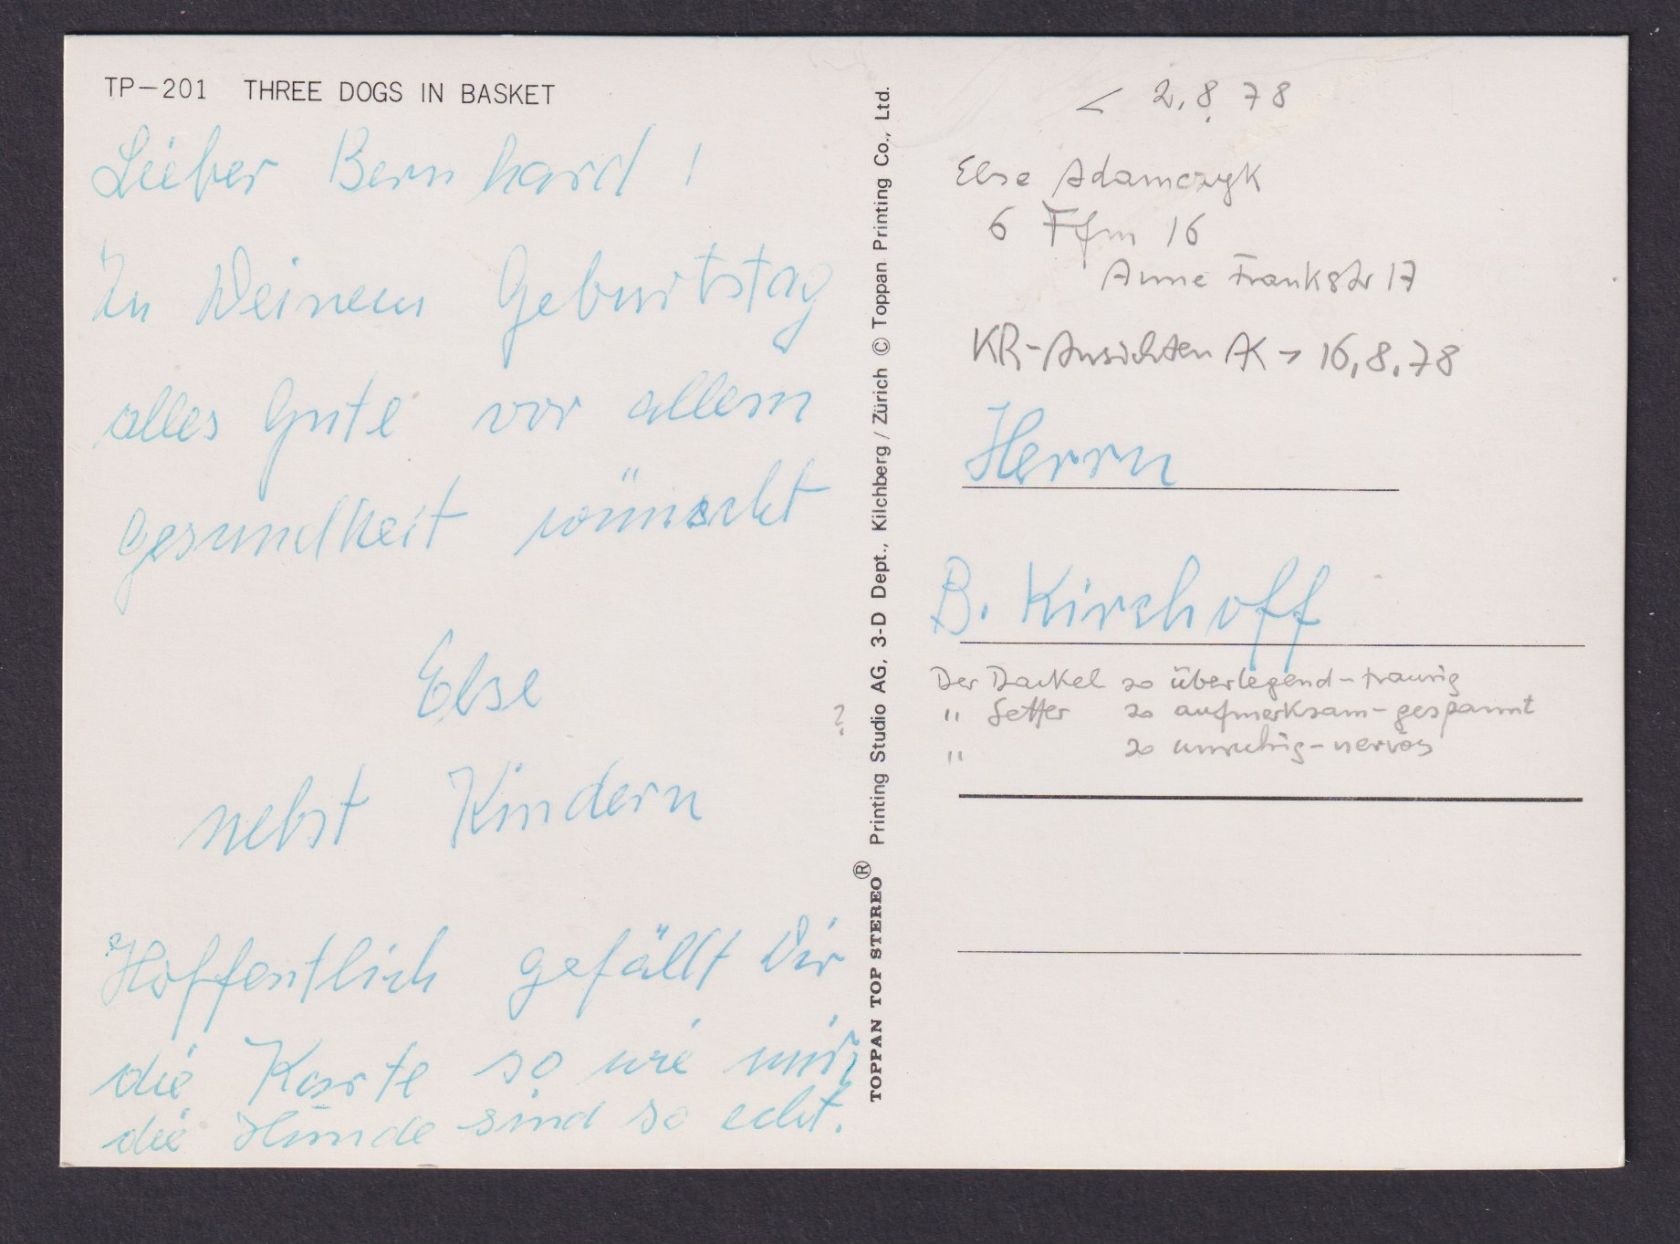 TP-201 THREE DOGS IN BASKET
Lieber Bernhard !
Zu Deinem Geburtstag
alles Gute vor allem
gesundheit wünscht
Else
nebst Kindern
Hoffentlich gefällt Dir
die Karte so wie mir,
die Hunde sind so echt.
?
TOPPAN TOP STEREO® Printing Studio AG, 3-D Dept., Kilchberg / Zürich © Toppan Printing Co., Ltd.
< 2.8.78
Else Adamczyk
6 Ffm 16
Anne Frankstr 17
KR-Ansichten AK → 16.8.78
Herrn
B. Kirchoff
Der Dackel so überlegend-traurig
" Setter so aufmerksam-gespannt
" so unruhig-nervös